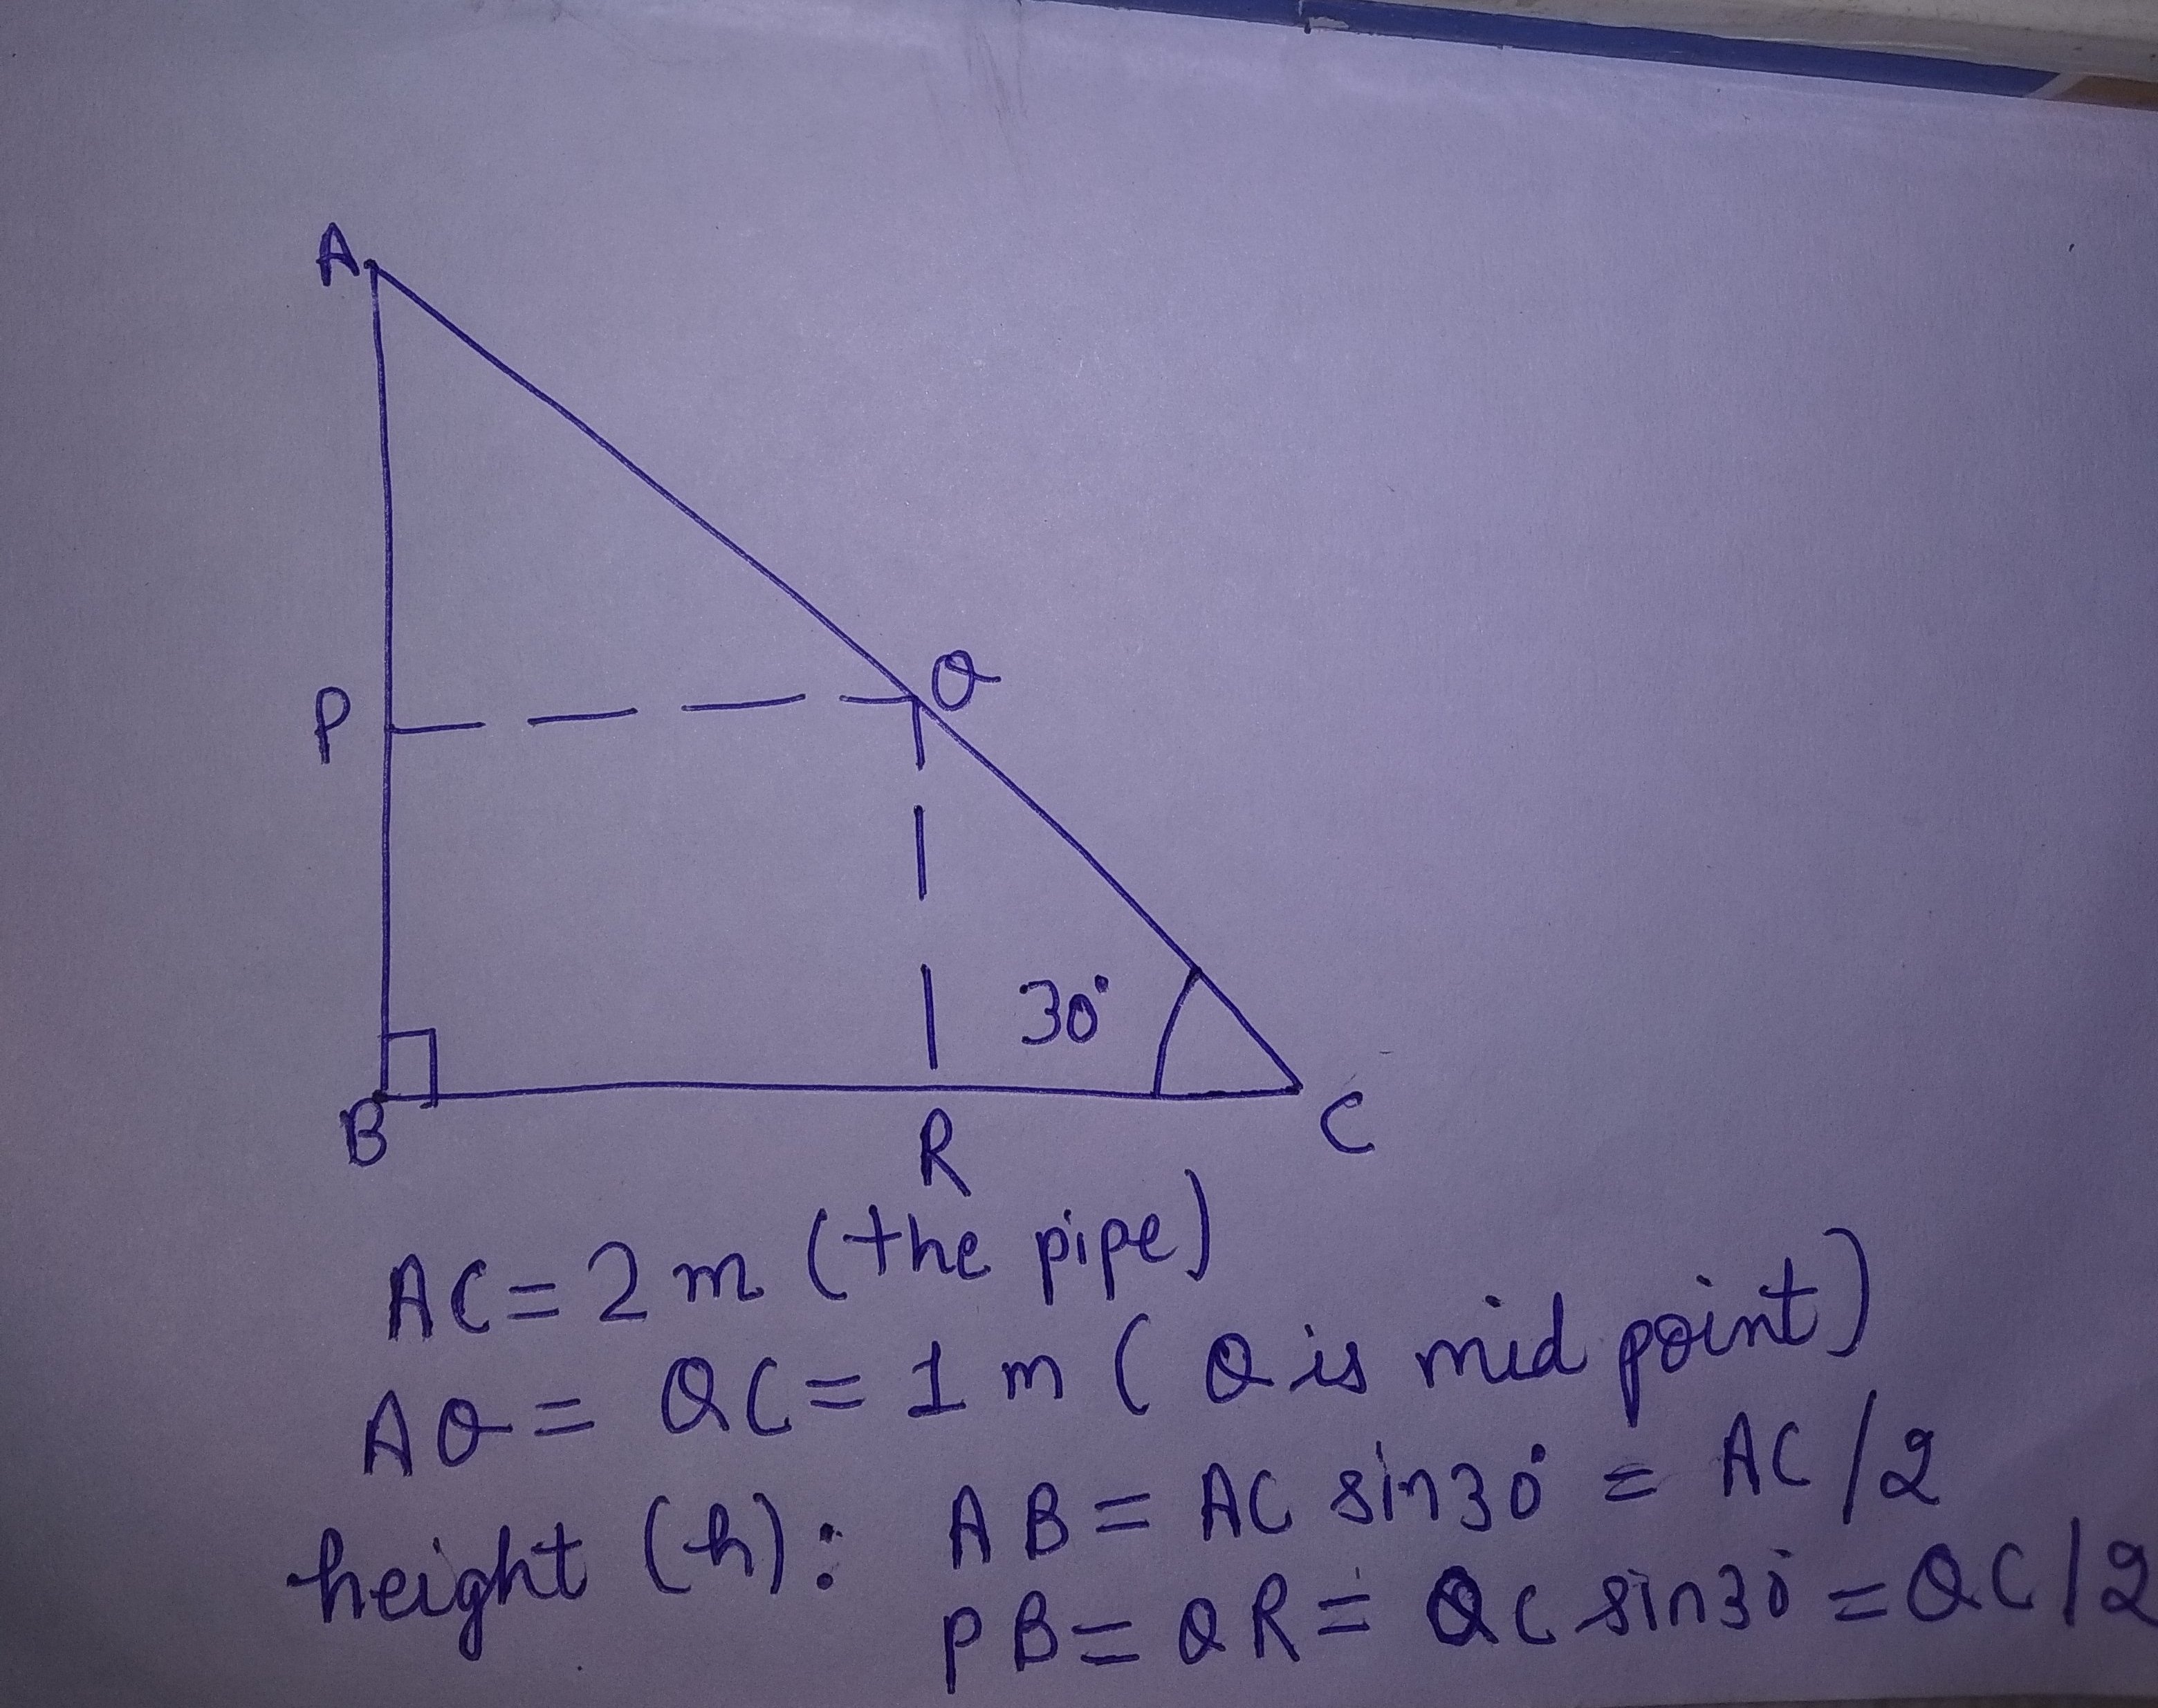 A
Q
P
30°
B
R
C
AC = 2 m (the pipe)
AQ = QC = 1 m ( Q is mid point)
height (h): AB = AC sin30° = AC/2
PB = QR = QC sin30° = QC/2